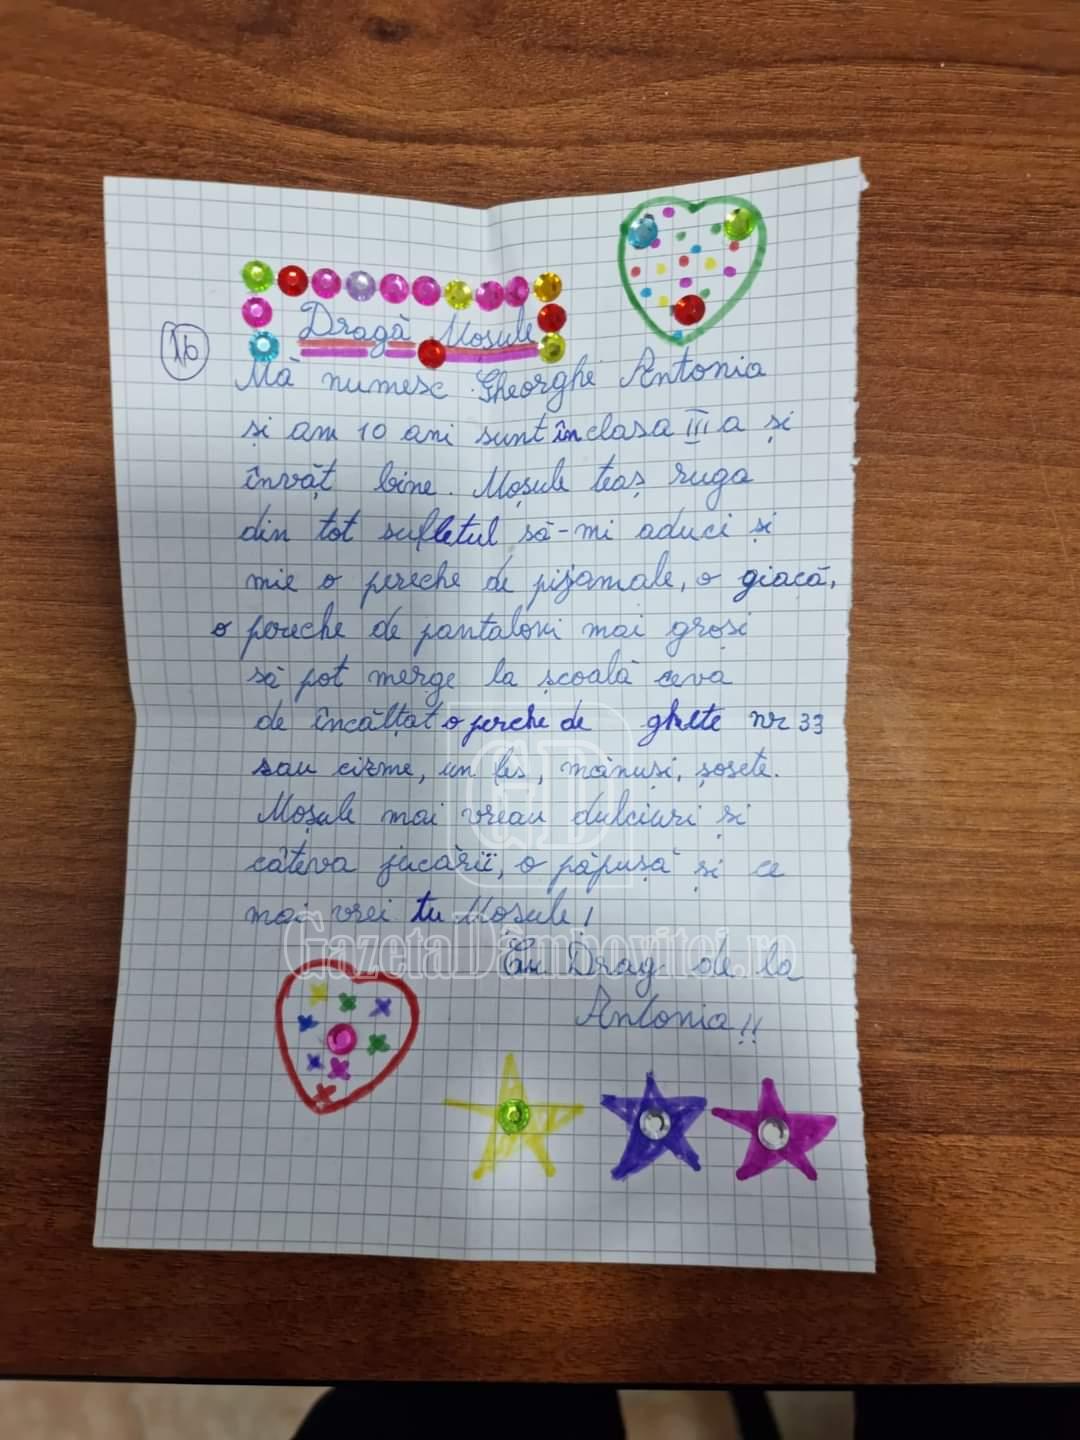 16
Dragă Moșule
Mă numesc Gheorghe Antonia
și am 10 ani sunt în clasa III a și
învăț bine. Moșule teaș ruga
din tot sufletul să-mi aduci și
mie o pereche de pijamale, o giacă,
o pereche de pantaloni mai groși
să pot merge la școală ceva
de încălțat o perche de ghete nr 33
sau cizme, un fes, mănuși, șosete.
Moșule mai vreau dulciuri și
câteva jucării, o păpușă și ce
mai vrei tu Moșule!
Cu Drag de la
Antonia!!
GD
GazetaDâmboviței.ro